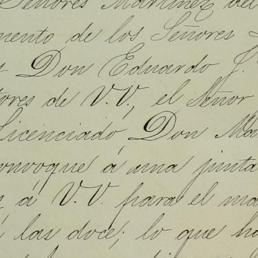 Señores Martínez del
mento de los Señores
Don Eduardo J.
tores de V.V., el Señor
Licenciado Don Ma
onvoque á una junta
á V.V. para el ma
á las doce; lo que ha